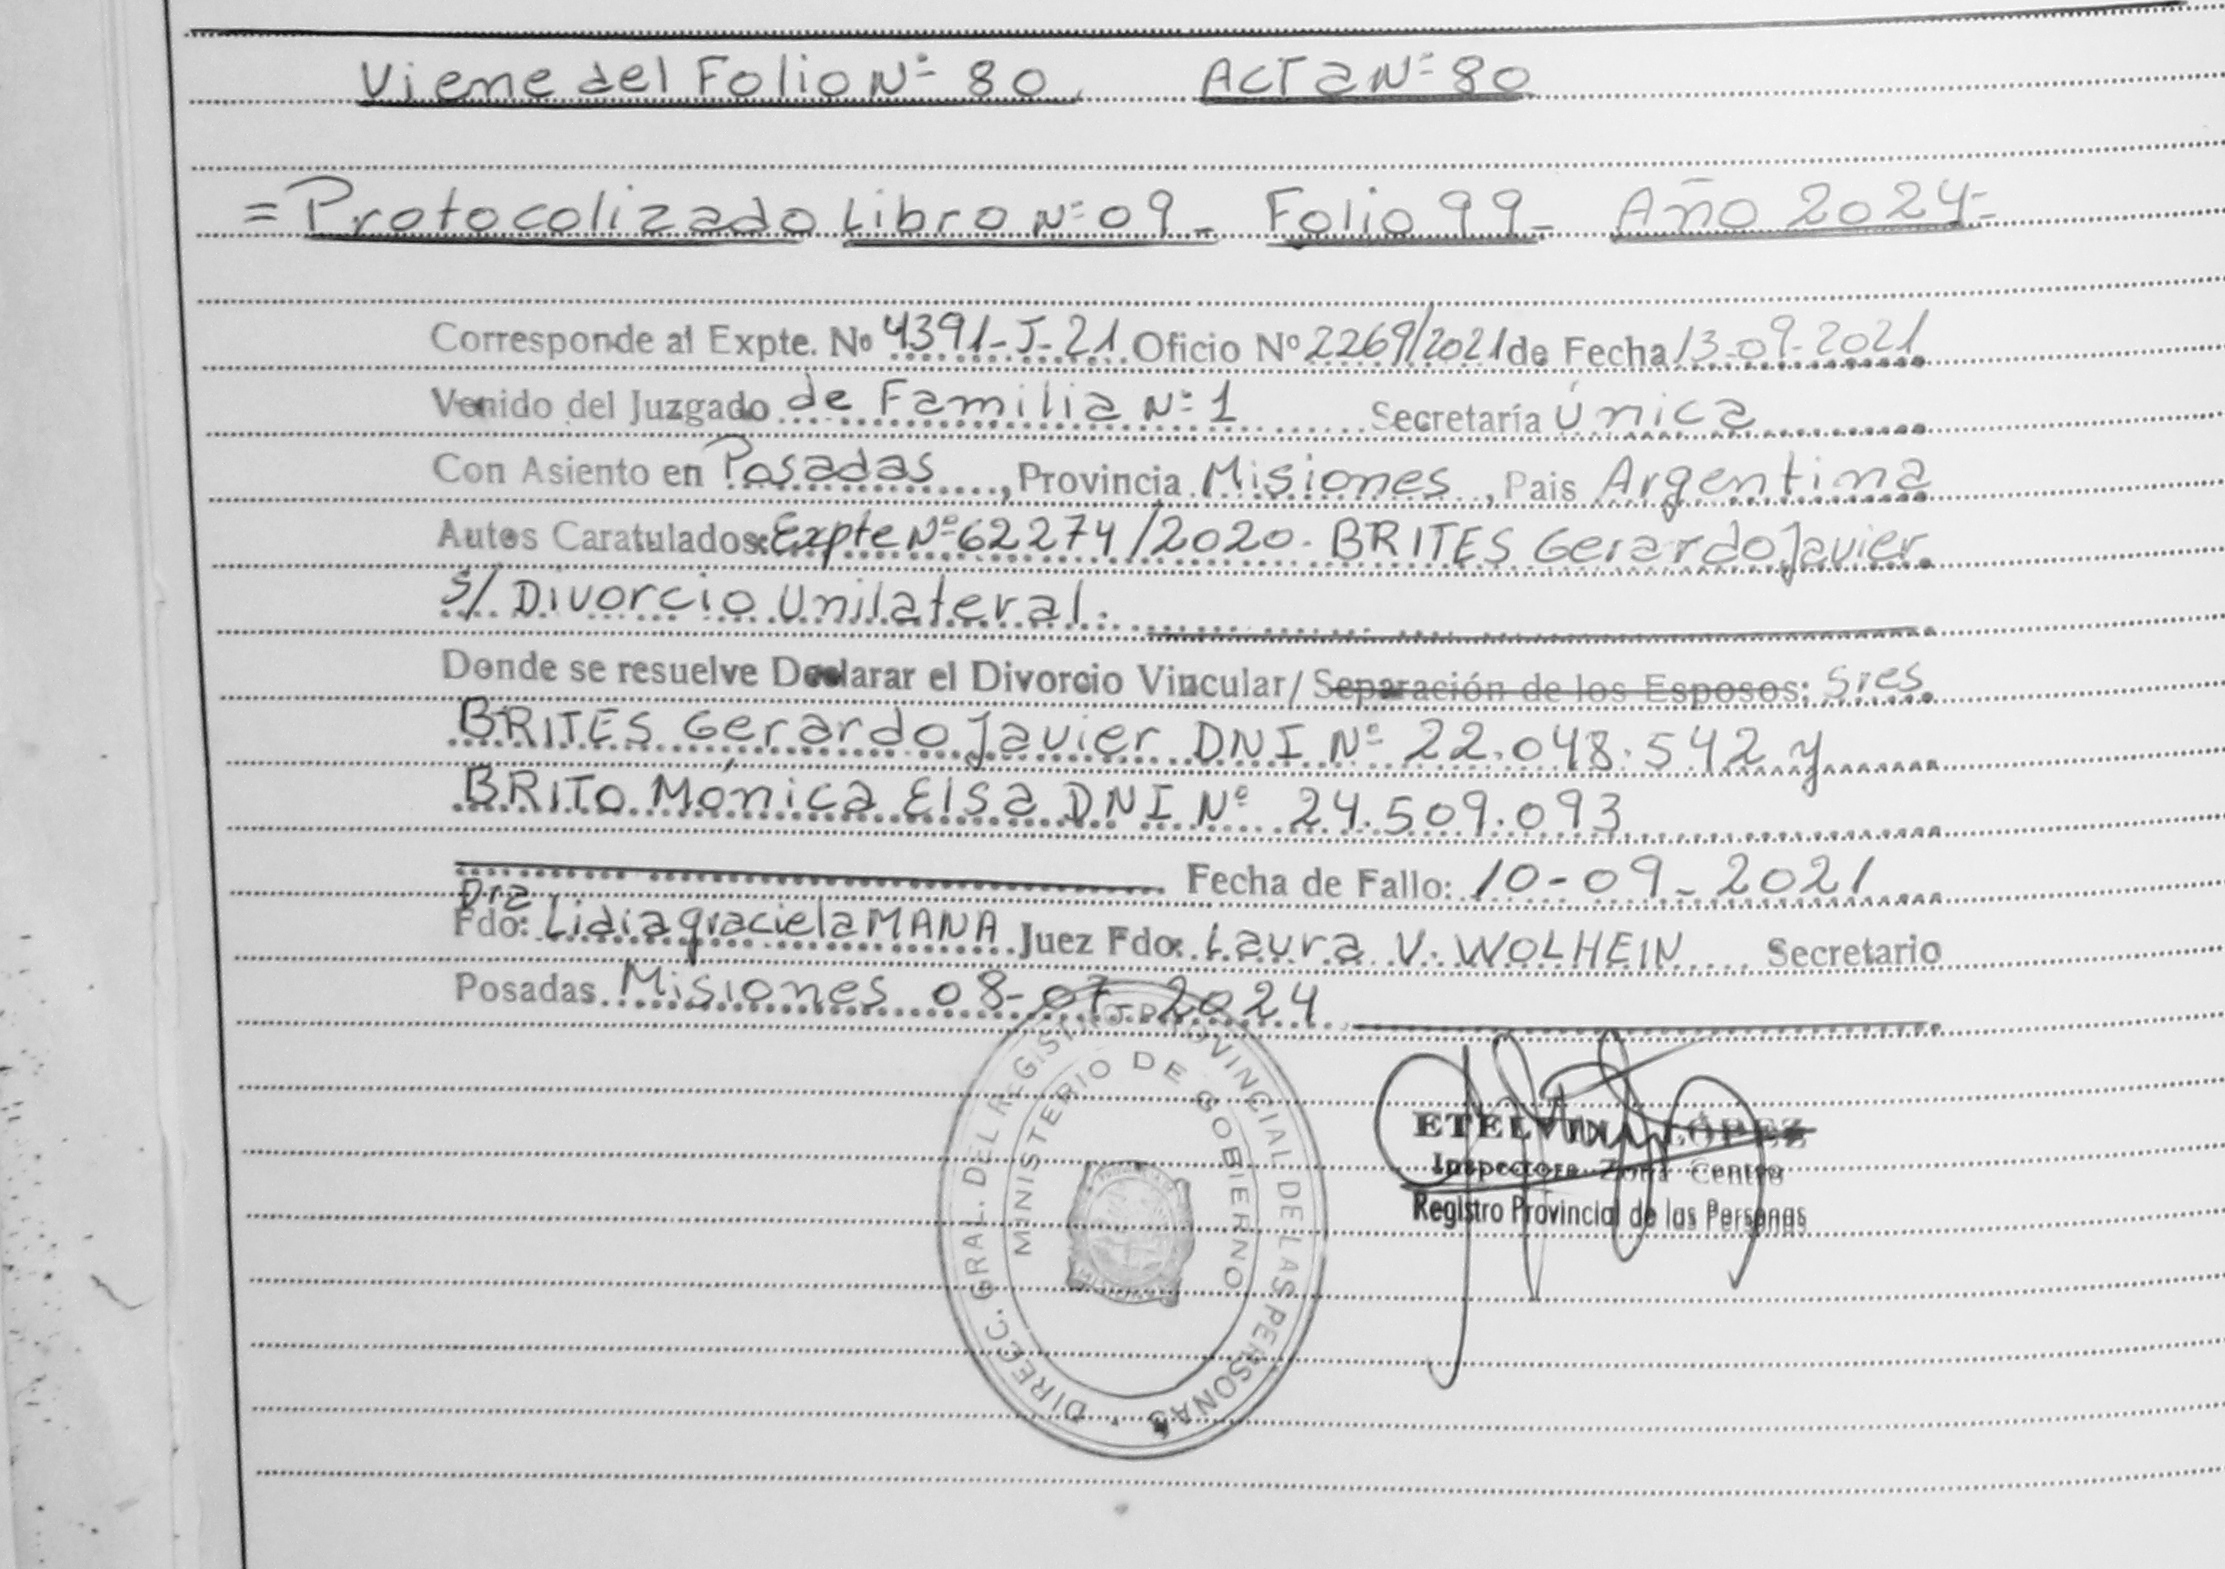 Viene del Folio Nº 80. Acta Nº 80
= Protocolizado Libro Nº 09 - Folio 99 - Año 2024 -
Corresponde al Expte. Nº 4391-J-21 Oficio Nº 2269/2021 de Fecha 13-09-2021
Venido del Juzgado de Familia Nº 1 Secretaría Única
Con Asiento en Posadas, Provincia Misiones, Pais Argentina
Autos Caratulados: Expte Nº 62274/2020. BRITES Gerardo Javier
S/ Divorcio Unilateral.
Donde se resuelve Declarar el Divorcio Vincular / Separación de los Esposos: Sres
BRITES Gerardo Javier DNI Nº 22.048.542 y
BRITO Mónica Elsa DNI Nº 24.509.093
Fecha de Fallo: 10-09-2021
Dra
Fdo: Lidia graciela MANA Juez Fdo: Laura V. WOLHEIN Secretario
Posadas Misiones 08-07-2024
DIRECC. GRAL. DEL REGISTRO PROVINCIAL DE LAS PERSONAS
MINISTERIO DE GOBIERNO
LÓPEZ
Inspectora Zona Centro
Registro Provincial de las Personas